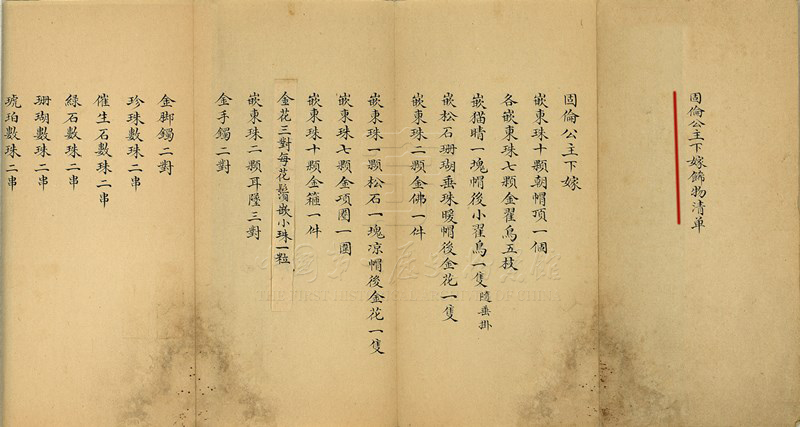 固倫公主下嫁飾物清單
固倫公主下嫁
嵌東珠十顆朝帽頂一個
各嵌東珠七顆金翟鳥五枝
嵌猫睛一塊帽後小翟鳥一隻隨垂掛
嵌松石珊瑚垂珠暖帽後金花一隻
嵌東珠二顆金佛一件
嵌東珠一顆松石一塊凉帽後金花一隻
嵌東珠七顆金項圈一圍
嵌東珠十顆金箍一件
金花三對每花鬚嵌小珠一粒
嵌東珠二顆耳墜三對
金手鐲二對
金脚鐲二對
珍珠數珠二串
催生石數珠二串
綠石數珠二串
珊瑚數珠二串
琥珀數珠二串
THE FIRST HISTORICAL ARCHIVES OF CHINA